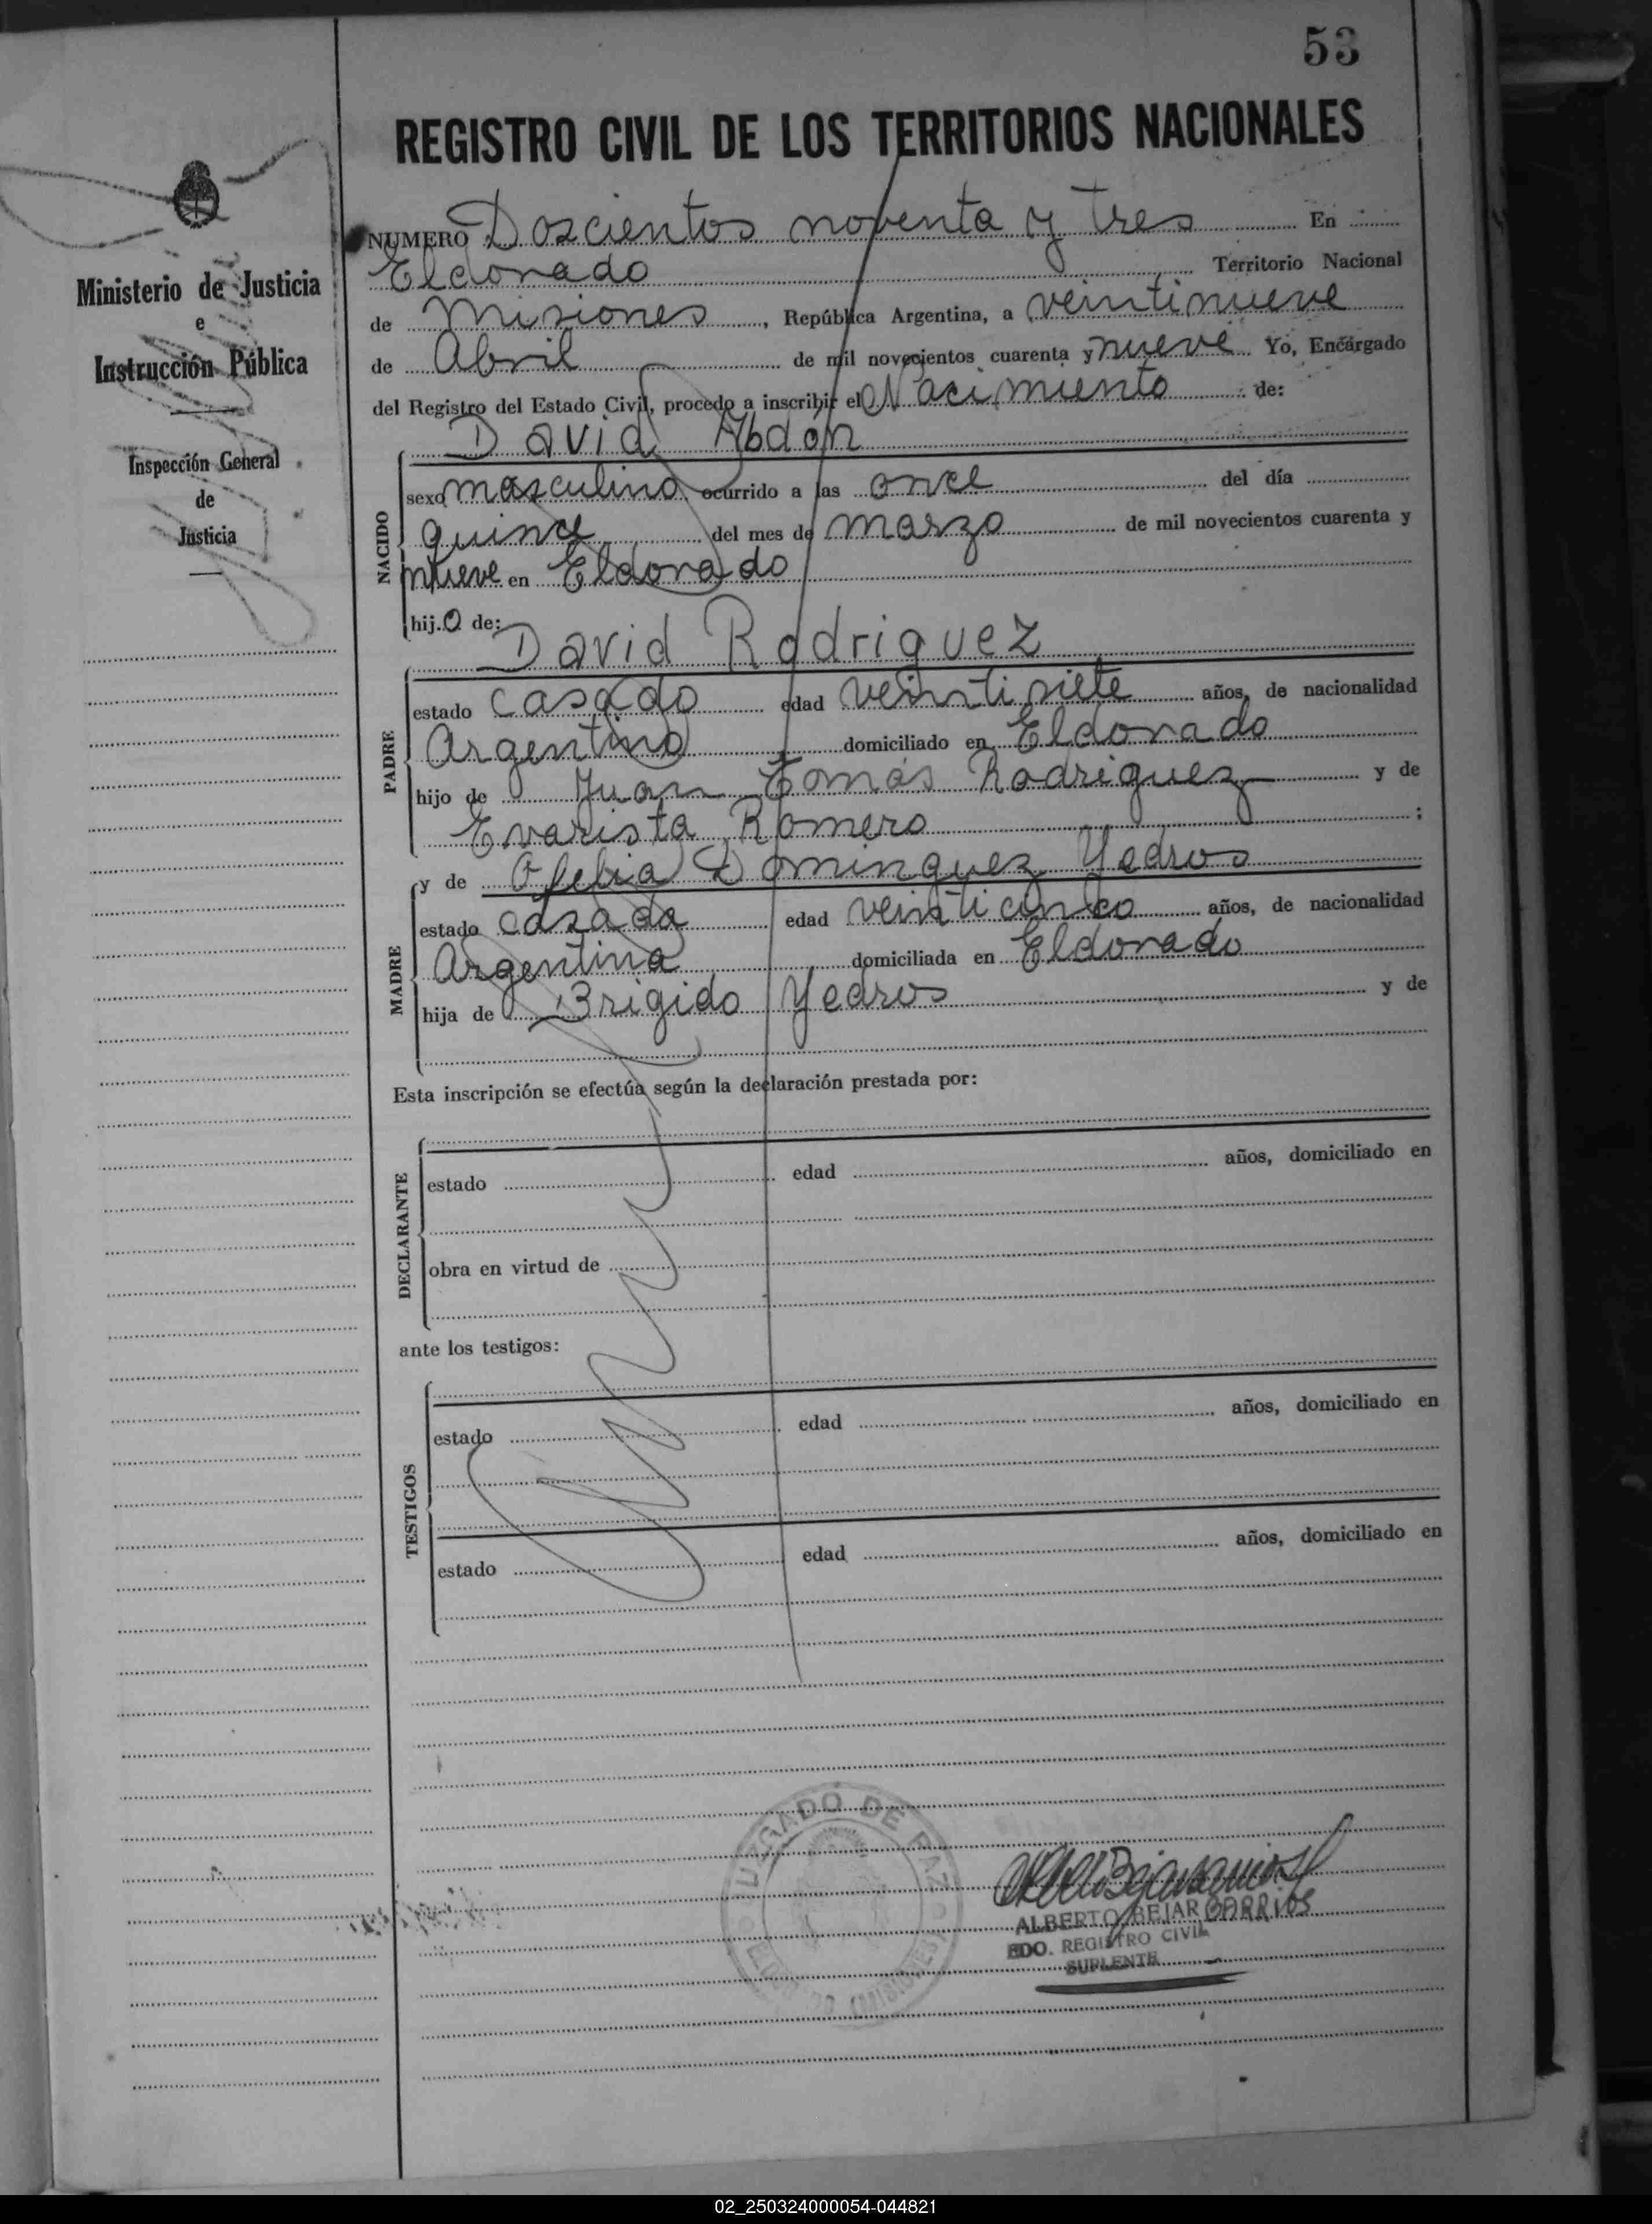 53
REGISTRO CIVIL DE LOS TERRITORIOS NACIONALES
Ministerio de Justicia
e
Instrucción Pública
Inspección General
de
Justicia
NUMERO Doscientos noventa y tres En
Eldorado Territorio Nacional
de Misiones, República Argentina, a veintinueve
de Abril de mil novecientos cuarenta y nueve Yo, Encargado
del Registro del Estado Civil, procedo a inscribir el Nacimiento de:
David Abdón
NACIDO
sexo masculino ocurrido a las once del día
quince del mes de marzo de mil novecientos cuarenta y
nueve en Eldorado
hij.o de:
David Rodriguez
PADRE
estado casado edad veintisiete años, de nacionalidad
Argentino domiciliado en Eldorado
hijo de Juan Tomás Rodriguez y de
Evarista Romero ;
y de Ofelia Dominguez Yedros
MADRE
estado casada edad veinticinco años, de nacionalidad
Argentina domiciliada en Eldorado
hija de Brigido Yedros y de
Esta inscripción se efectúa según la declaración prestada por:
DECLARANTE
estado edad años, domiciliado en
obra en virtud de
ante los testigos:
TESTIGOS
estado edad años, domiciliado en
estado edad años, domiciliado en
JUZGADO DE PAZ
MISIONES
ALBERTO BEJAR BARRIOS
EDO. REGISTRO CIVIL
SUPLENTE
02_250324000054-044821